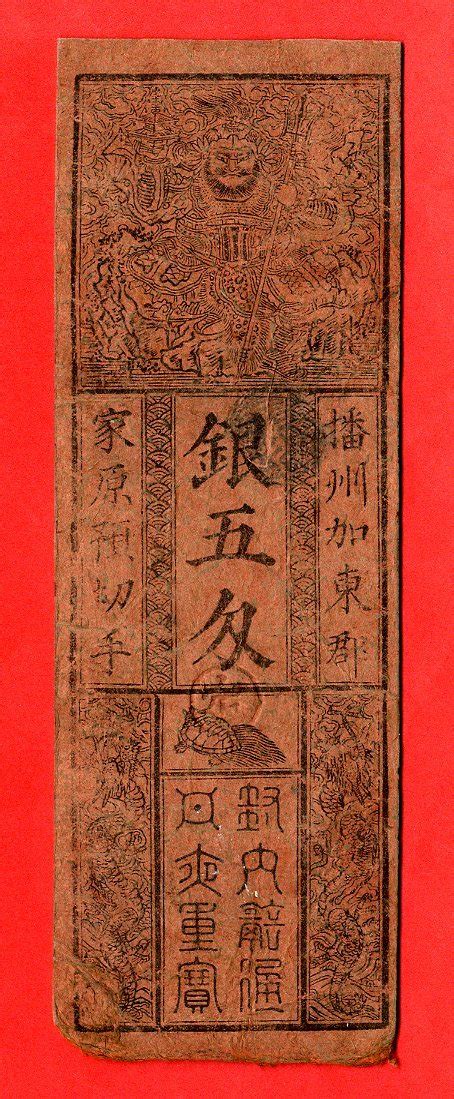 播州加東郡
銀五匁
家原預切手
封内通
重寶